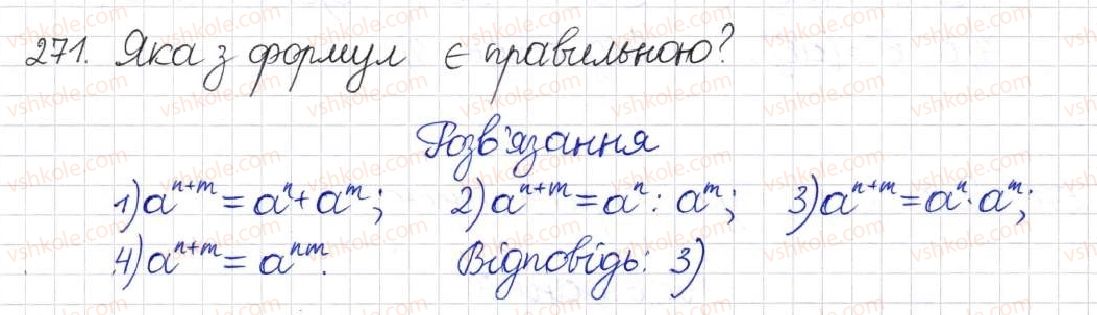 271. Яка з формул є правильною?
Розв'язання
1) a^{n+m} = a^n + a^m; 2) a^{n+m} = a^n : a^m; 3) a^{n+m} = a^n · a^m;
4) a^{n+m} = a^{nm}. Відповідь: 3)